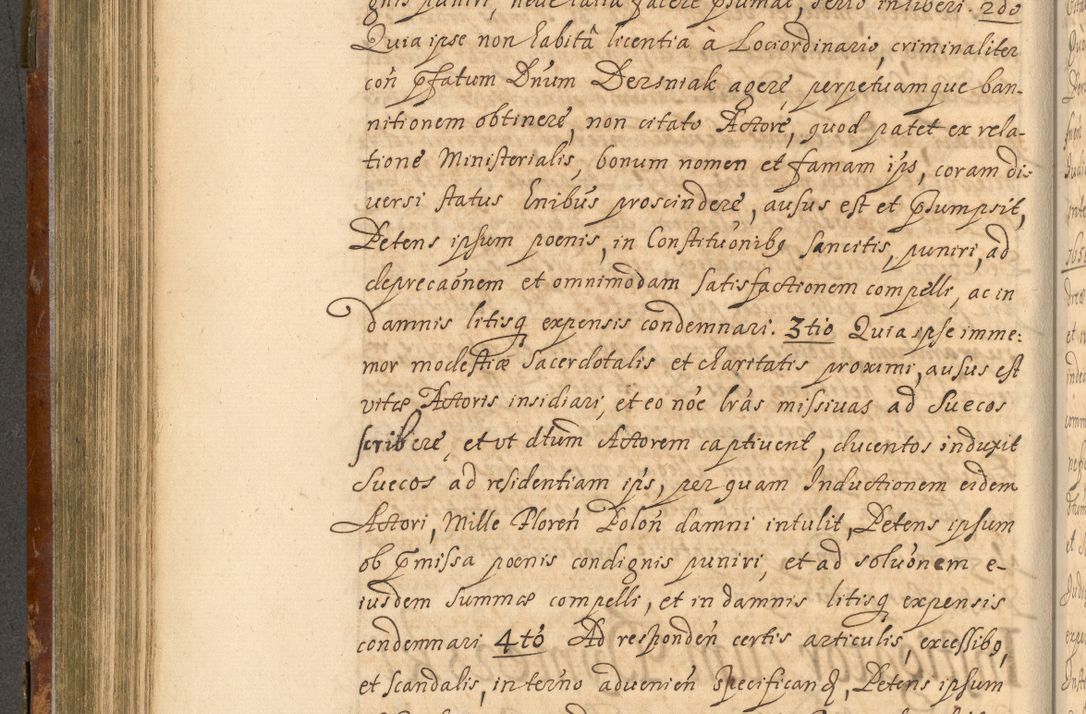 gnis puniri, neve talia facere psumat, serio inhiberi. 2do
Quia ipse non habitâ licentia à Lociordinario, criminaliter
coñ pfatum Dnum Dersniak agere perpetuamque ban-
nitionem obtinere, non citato Actore, quod patet ex rela-
tione Ministerialis, bonum nomen et famam ips, coram di-
versi status hnibus proscindere, ausus est et psumpsit,
Petens ipsum poenis, in Constituõnibq sancitis, puniri, ad
deprecaõnem et omnimodam satisfactionem compelli, ac in
damnis litisq expensis condemnari. 3tio Quia ipse imme:
mor modestiæ sacerdotalis et charitatis proximi, ausus est
vitæ Actoris insidiari, et eo nõe lrás missivas ad Suecos
scribere, et vt dtum Actorem captivent, ducentos induxit
Suecos ad residentiam ips, per quam Inductionem eidem
Actori, Mille Floreñ Poloñ damni intulit, Petens ipsum
ob pmissa poenis condignis puniri, et ad soluõnem e-
iusdem summæ compelli, et in damnis litisq expensis
condemnari 4tó Ad respondeñ certis articulis, excessibq,
et scandalis, in terno advenieñ specificand, Petens ipsum